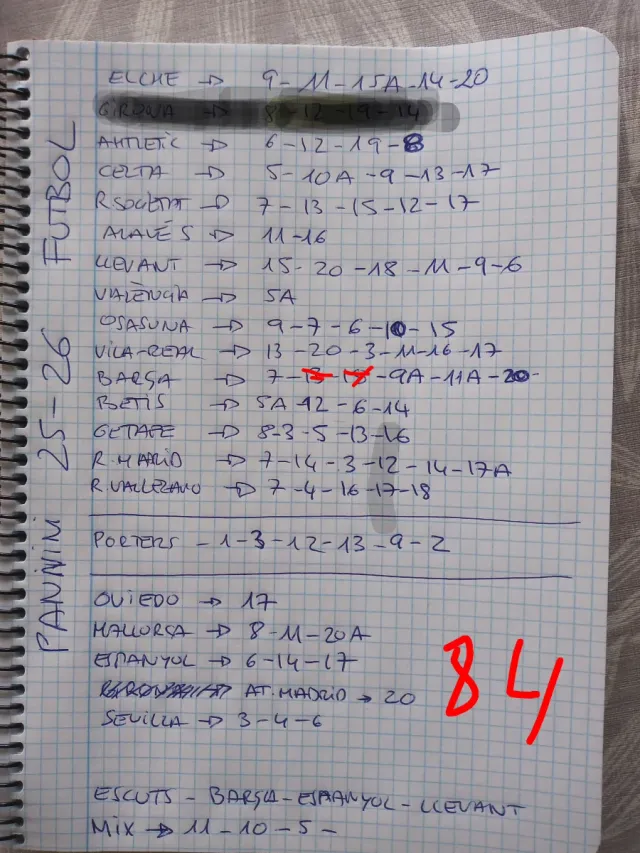 ELCHE → 9-11-15A-14-20
GIRONA → 8-12-19-14
AHTLETIC → 6-12-19-8
CELTA → 5-10A-9-13-17
R SOCIETAT → 7-13-15-12-17
ALAVÉS → 11-16
LLEVANT → 15-20-18-11-9-6
VALÈNCIA → 5A
OSASUNA → 9-7-6-10-15
VILA-REAL → 13-20-3-11-16-17
BARÇA → 7-13-15-9A-11A-20-
BETIS → 5A-12-6-14
GETAFE → 8-3-5-13-16
R. MADRID → 7-14-3-12-14-17A
R. VALLECANO → 7-4-16-17-18
PORTERS - 1-3-12-13-9-2
OVIEDO → 17
MALLORCA → 8-11-20A
ESPANYOL → 6-14-17
AT. MADRID → 20
SEVILLA → 3-4-6
84
ESCUTS - BARÇA-ESPANYOL-LLEVANT
MIX → 11-10-5-
PANINIM 25-26 FUTBOL